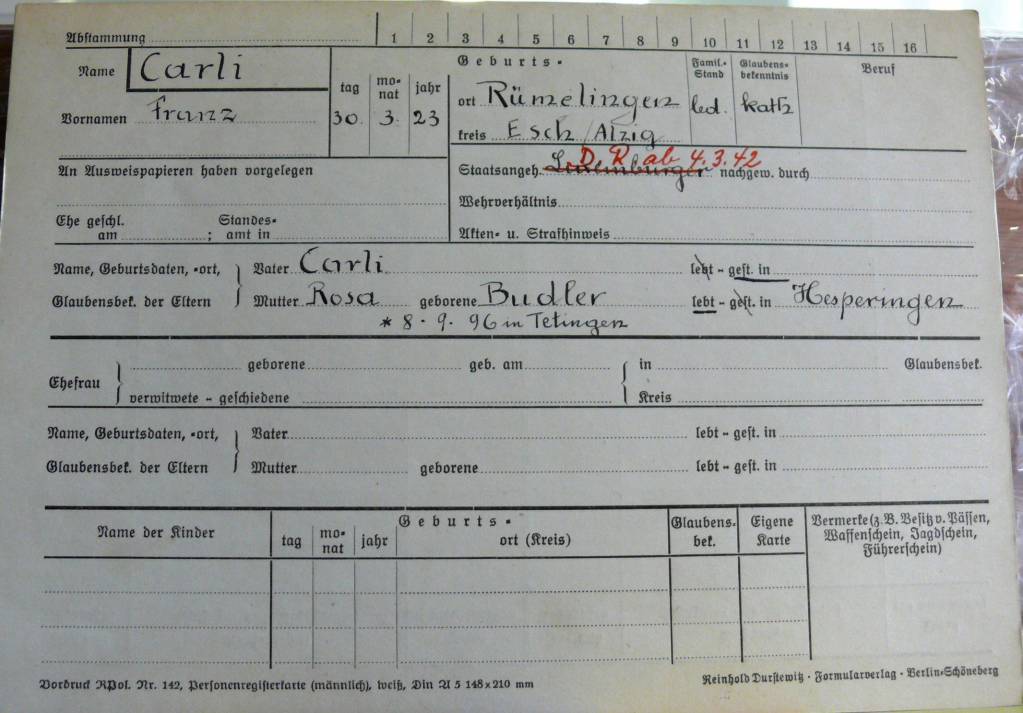 Abstammung 1 2 3 4 5 6 7 8 9 10 11 12 13 14 15 16
Name Carli
Vornamen Franz
tag monat jahr
30. 3. 23
Geburts-
ort Rümelingen
kreis Esch/Alzig
Famil.-Stand
led.
Glaubens-bekenntnis
kath
Beruf
An Ausweispapieren haben vorgelegen
D. R. ab 4.3.42
Staatsangeh. Luxemburger nachgew. durch
Wehrverhältnis
Ehe geschl. am ; Standes-amt in
Akten- u. Strafhinweis
Name, Geburtsdaten, -ort, Vater Carli lebt - gest. in
Glaubensbek. der Eltern Mutter Rosa geborene Budler lebt - gest. in Hesperingen
* 8. 9. 96 in Tetingen
Ehefrau geborene geb. am in Glaubensbek.
verwitwete - geschiedene Kreis
Name, Geburtsdaten, -ort, Vater lebt - gest. in
Glaubensbek. der Eltern Mutter geborene lebt - gest. in
Name der Kinder
Geburts-
tag monat jahr ort (Kreis)
Glaubens-bek.
Eigene Karte
Vermerke (z. B. Besitz v. Pässen,
Waffenschein, Jagdschein,
Führerschein)
Vordruck RPol. Nr. 142, Personenregisterkarte (männlich), weiß, Din A 5 148x210 mm
Reinhold Durstewitz · Formularverlag · Berlin-Schöneberg